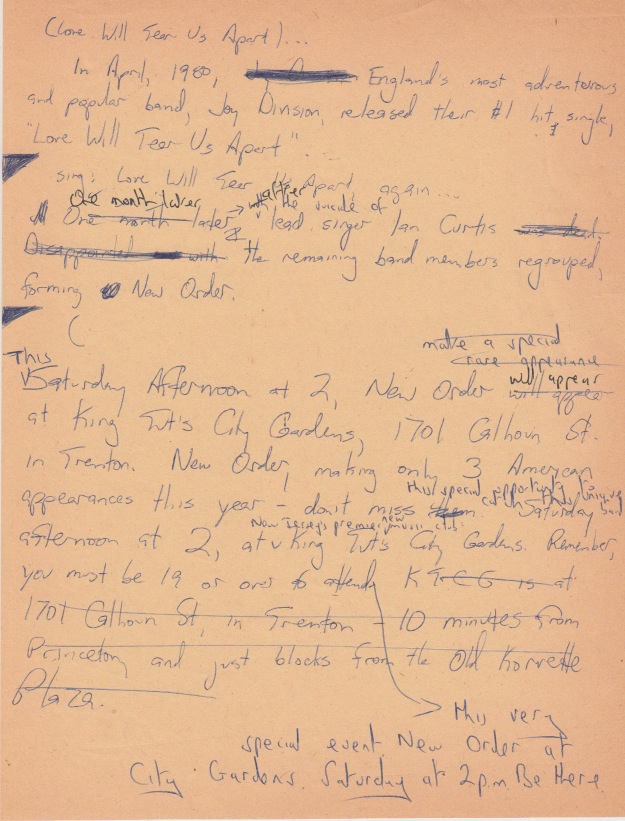 (Love Will Tear Us Apart)...
In April, 1980, England's most adventurous
and popular band, Joy Division, released their #1 hit single,
"Love Will Tear Us Apart".
sing: Love Will Tear Us Apart, again...
One month later, after
with the suicide of
One month later lead singer Ian Curtis was dead.
Disappointed with the remaining band members regrouped,
forming New Order.
(
make a special
rare appearance
This will appear
Saturday Afternoon at 2, New Order will appear
at King Tut's City Gardens, 1701 Calhoun St.
in Trenton. New Order, making only 3 American
this special opportunity
appearances this year - don't miss them. Saturday
New Jersey's premier new music club:
afternoon at 2, at King Tut's City Gardens. Remember,
you must be 19 or over to attend KTCG is at
1701 Calhoun St, in Trenton - 10 minutes from
Princeton, and just blocks from the Old Korvette
Plaza.
this very
special event. New Order at
City Gardens. Saturday at 2 p.m. Be there.